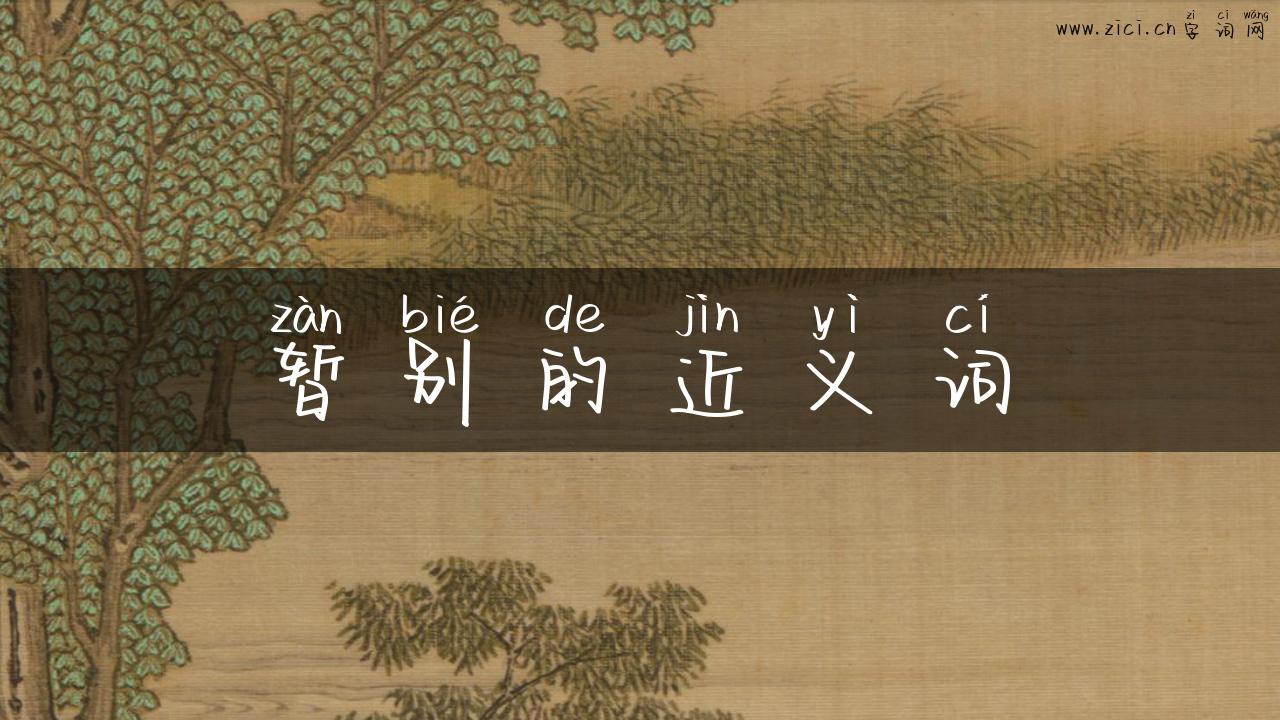 zì cí wǎng
www.zici.cn字词网
zàn bié de jìn yì cí
暂别的近义词